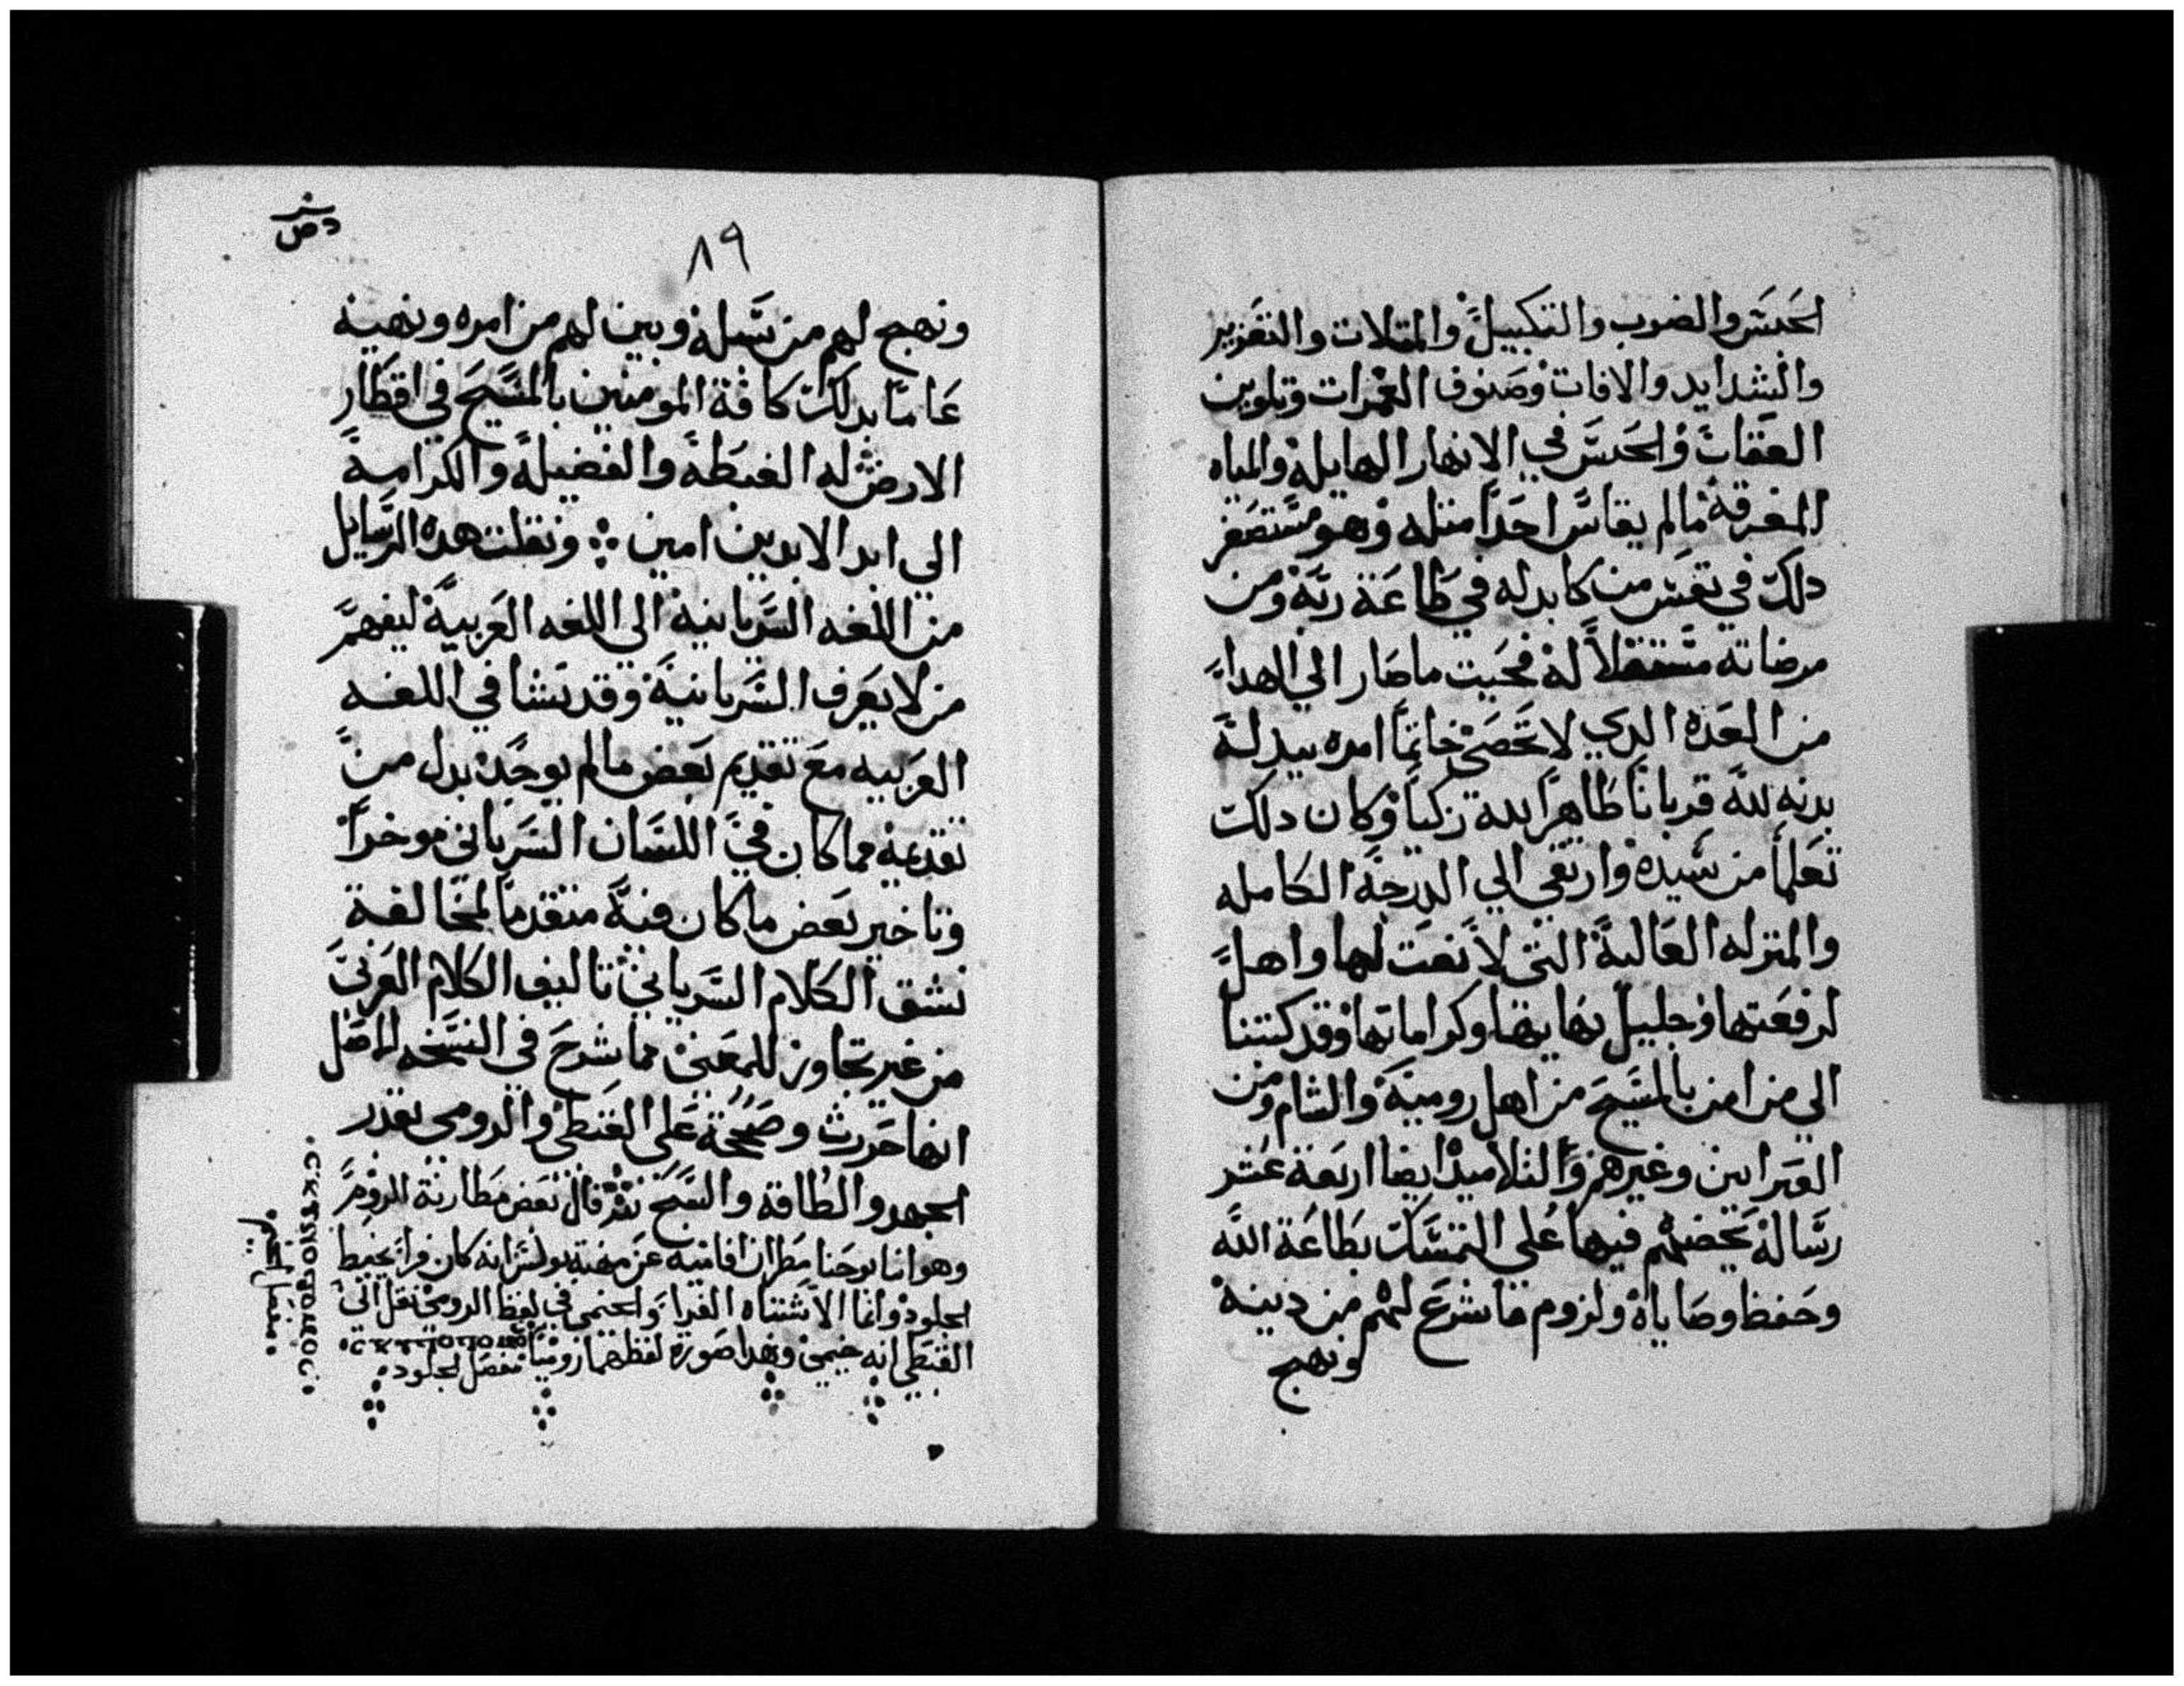 الحبس والضرب والتكبيل والمتلات والتغزير
والشدايد والافات وصنوف العمرات وتلوين
العقاب والحبس في الانهار الهايله والمياه
المغرقة مالم يقاس احدا متله وهو مستصغر
دلك في نفس من كابد له في طاعة ربه ومن
مرضاته مستقلا له فحيت ما صار الي الهدا
من العده الدي لا تحصي خاتما امره ببدله
بدنه لله قربانا طاهرا لله زكيا وكان دلك
تعلما من سيده وارتقي الي الدرجة الكامله
والمنزله العالية التي لا نعت لها واهل
لرفعتها وجليل بهايها وكراماتها وقد كتبنا
الي من امن بالمسيح من اهل رومية والشام ومن
العبرانيين وغيرهم والتلاميد ايضا اربعة عشر
رسالة يحضهم فيها علي التمسك بطاعة الله
وحفظ وصاياه ولزوم ما شرع لهم من دينه
ونهج
٨٩
ونهج لهم من سبله وبين لهم من امره ونهيه
عاما بدلك كافة المومنين بالمسيح في اقطار
الارض له الغبطة والفضيلة والكرامة
الي ابد الابدين امين ونقلت هده الرسايل
من اللغه السريانية الي اللغه العربية ليفهم
من لا يعرف السريانية وقد نشا في اللغه
العربيه مع تقديم بعض مالم يوجد بدل من
تقديمه مما كان في اللسان السرياني موخرا
وتاخير بعض ما كان فيه متقدما لمخالفة
نسق الكلام السرياني تاليف الكلام العربي
من غير تجاوز للمعني مما شرح في النسخه الاصل
انها حررت وصححة علي القبطي والرومي بقدر
الجهد والطاقة والنسخ قال بعض مطارنة الروم
وهو انبا يوحنا مطران عن مهنة بولس انه كان فرا يخيط
الجلود وانما الاشتباه الفرا والخيمي في لفظ الرومي نقل الي
القبطي انه خيمي وهدا صورة لفظهما روميا مفصل الجلود
مفصل الخيم